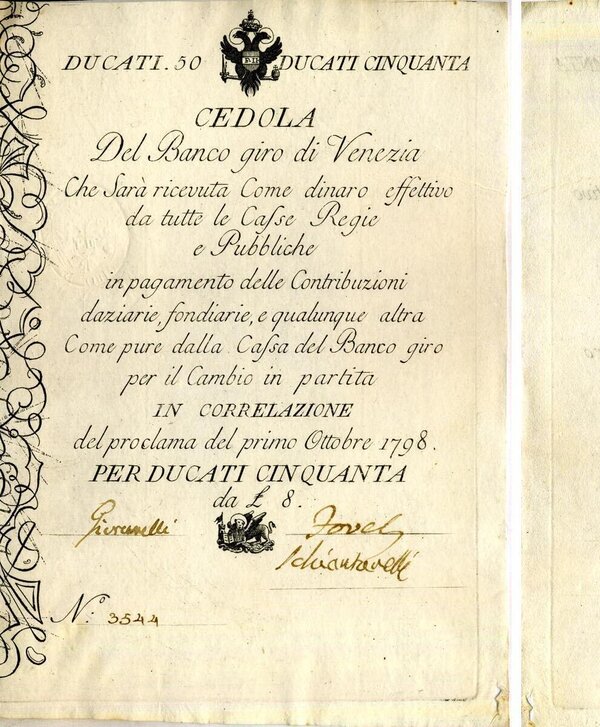 DUCATI. 50 DUCATI CINQUANTA
CEDOLA
Del Banco giro di Venezia
Che Sarà ricevuta Come dinaro effettivo
da tutte le Caſse Regie
e Pubbliche
in pagamento delle Contribuzioni
daziarie, fondiarie, e qualunque altra
Come pure dalla Caſsa del Banco giro
per il Cambio in partita
IN CORRELAZIONE
del proclama del primo Ottobre 1798.
PER DUCATI CINQUANTA
da £ 8.
Giovanelli
N.º 3544